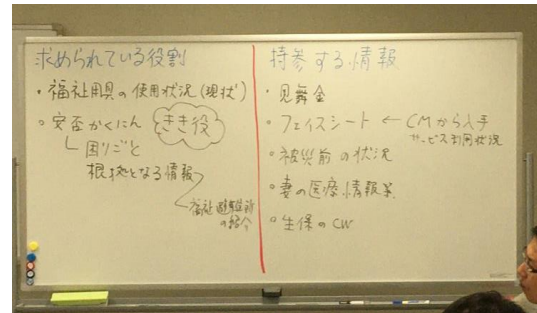 求められている役割
・福祉用具の使用状況(現状)
・安否かくにん
きき役
困りごと
根拠となる情報
福祉避難所
の紹介
持参する情報
・見舞金
・フェイスシート ← CMから入手
サービス利用状況
・被災前の状況
・妻の医療情報系
・生保のCW